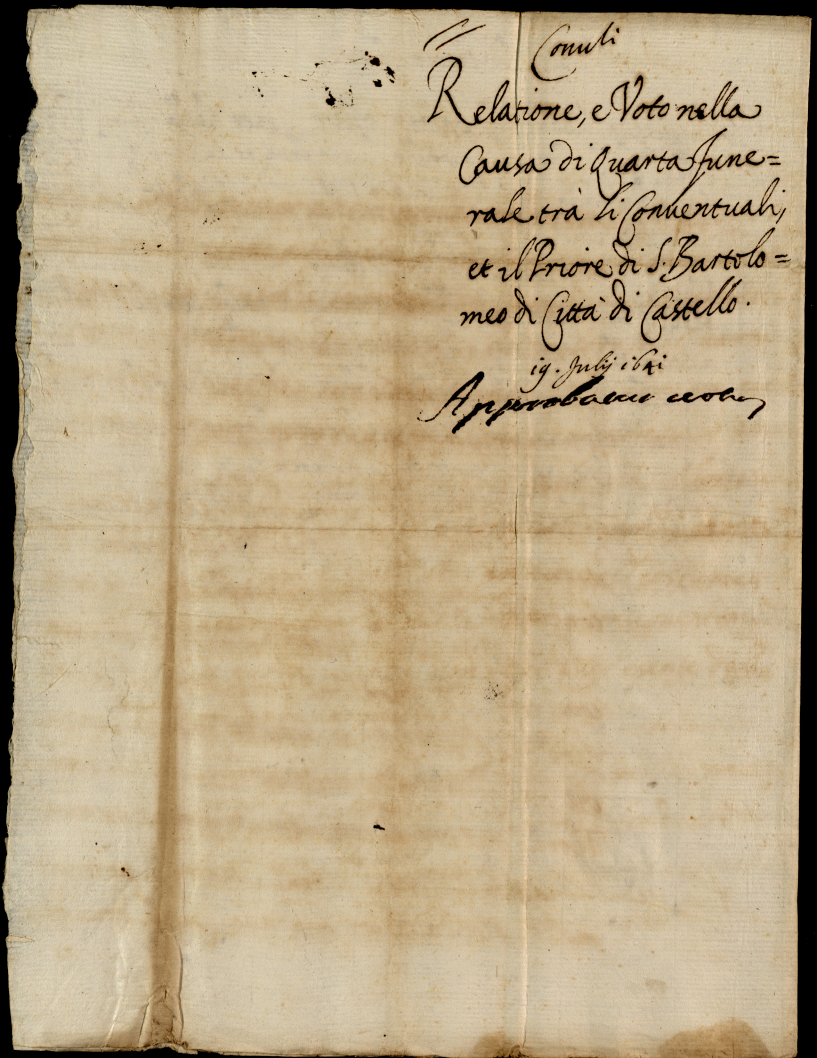 Relatione, e Voto nella
Causa di Quarta Fune=
rale trà li Conuentuali,
et il Priore di S. Bartolo=
meo di Città di Castello.
19. Julij 1641